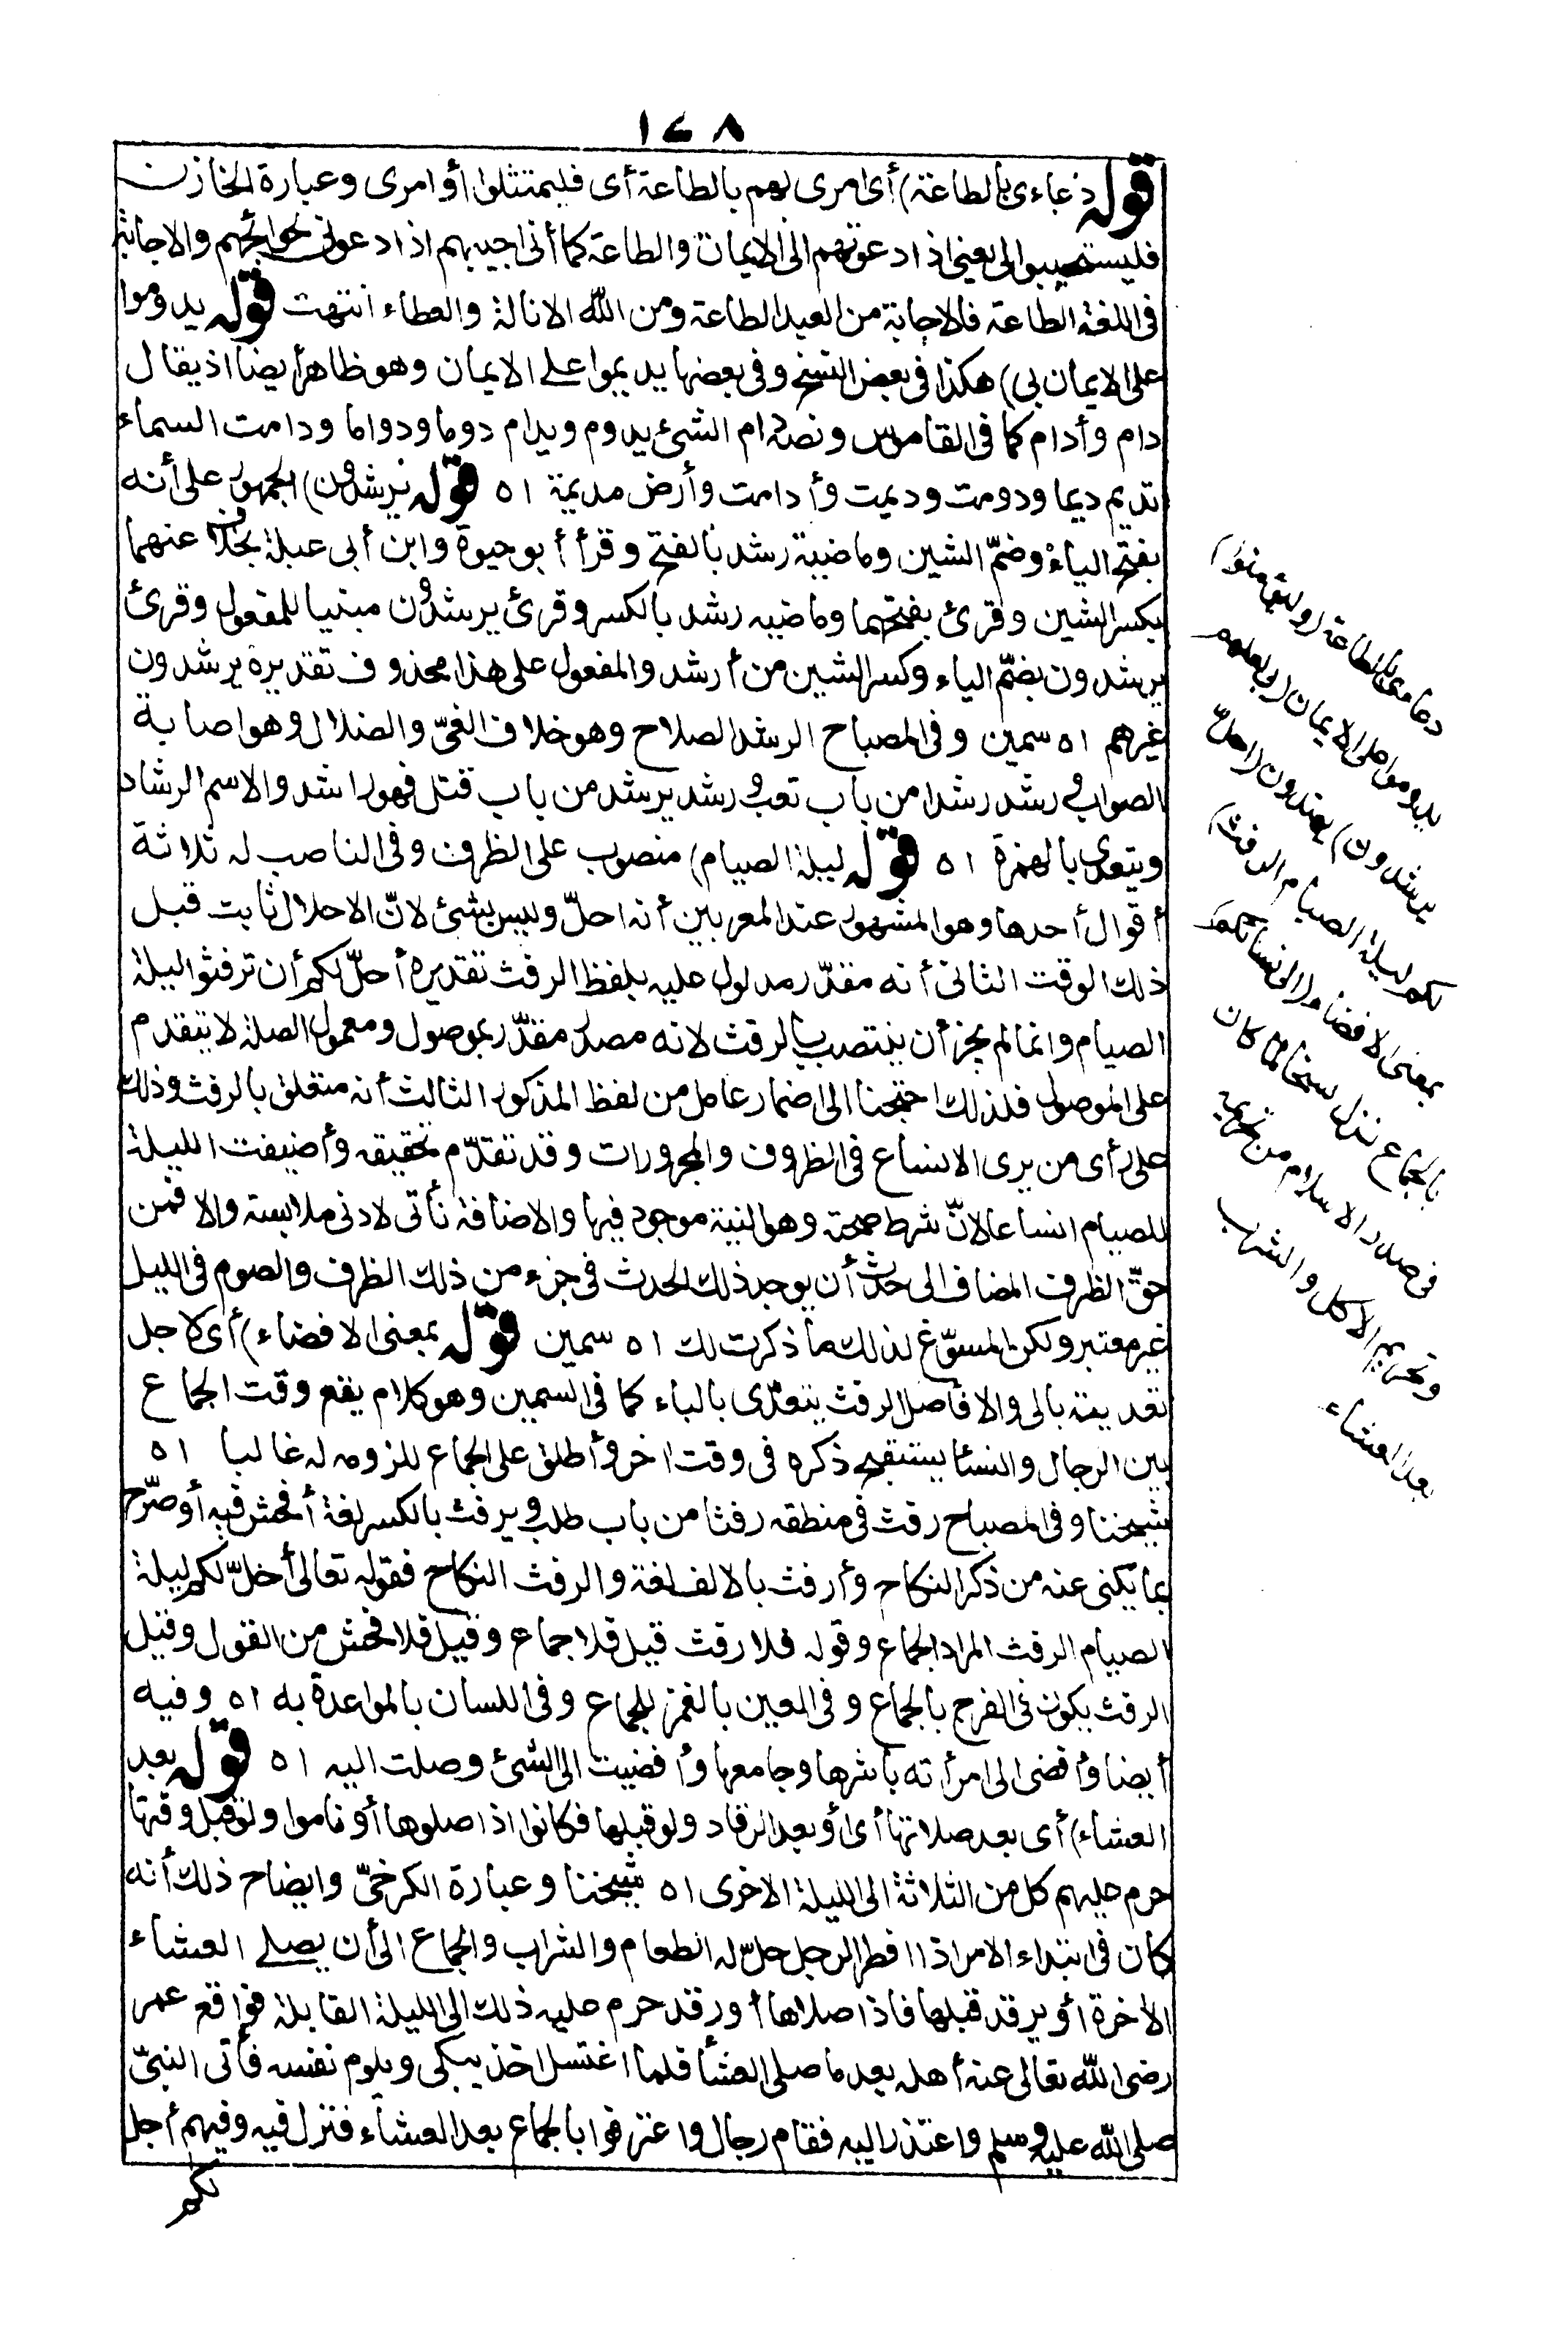 ١٤٨
قوله دعاءى بالطاعة) أى امرى لهم بالطاعة أى فليمتثلوا أوامرى وعبارة الخازن
فليستجيبوا لى يعنى اذا دعوتهم الى الايمان والطاعة كما أنى اجيبهم اذا دعونى لحوائجهم والاجابة
فى اللغة الطاعة فالاجابة من العبد الطاعة ومن الله الانالة والعطاء انتهت قوله يدوموا
على الايمان بى) هكذا فى بعض النسخ وفى بعضها يديموا على الايمان وهو ظاهر أيضا اذ يقال
دام وأدام كما فى القاموس ونصه دام الشئ يدوم ويدام دوما ودواما ودامت السماء
تديم ديما ودومت وديمت وأدامت وأرض مديمة اه قوله يرشدون) الجمهور على أنه
بفتح الياء وضمّ الشين وماضيه رشد بالفتح وقرأ أبو حيوة وابن أبى عبلة بخلاف عنهما
بكسر الشين وقرئ بفتحهما وماضيه رشد بالكسر وقرئ يرشدون مبنيا للمفعول وقرئ
يرشدون بضمّ الياء وكسر الشين من أرشد والمفعول على هذا محذوف تقديره يرشدون
غيرهم اه سمين وفى المصباح الرشد الصلاح وهو خلاف الغىّ والضلال وهو اصابة
الصواب و رشد رشدا من باب تعب و رشد يرشد من باب قتل فهو راشد والاسم الرشاد
ويتعدى بالهمزة اه قوله ليلة الصيام) منصوب على الظرف وفى الناصب له ثلاثة
أقوال أحدها وهو المشهور عند المعربين أنه احلّ وليس بشئ لانّ الاحلال ثابت قبل
ذلك الوقت الثانى أنه مقدّر مدلول عليه بلفظ الرفث تقديره أحلّ لكم أن ترفثوا ليلة
الصيام وانما لم يجز أن ينتصب بالرفث لانه مصدر مقدّر بموصول ومعمول الصلة لا يتقدم
على الموصول فلذلك احتجنا الى اضمار عامل من لفظ المذكور الثالث أنه متعلق بالرفث وذلك
على رأى من يرى الاتساع فى الظروف والمجرورات وقد تقدّم تحقيقه وأضيفت الليلة
للصيام اتساعا لانّ شرط صحته وهو النية موجود فيها والاضافة تأتى لادنى ملابسة والا فمن
حقّ الظرف المضاف الى حدث أن يوجد ذلك الحدث فى جزء من ذلك الظرف والصوم فى الليل
غير معتبر ولكن المسوّغ لذلك ما ذكرت لك اه سمين قوله بمعنى الافضاء) أى لاجل
تعديته بالى والا فأصل الرفث يتعدّى بالباء كما فى السمين وهو كلام يقع وقت الجماع
بين الرجال والنسا يستقبح ذكره فى وقت اخر و أطلق على الجماع للزومه له غالبا اه
شيخنا وفى المصباح رفث فى منطقه رفثا من باب طلب و يرفث بالكسر لغة أفحش فيه أو صرّح
بما يكنى عنه من ذكر النكاح وأرفث بالالف لغة والرفث النكاح فقوله تعالى أحلّ لكم ليلة
الصيام الرفث المراد الجماع وقوله فلا رفث قيل فلا جماع وقيل فلا فحش من القول وقيل
الرفث يكون فى الفرج بالجماع وفى العين بالغمز للجماع وفى اللسان بالمواعدة به اه وفيه
أيضا وأفضى الى امرأته باشرها وجامعها وأفضيت الى الشئ وصلت اليه اه قوله بعد
العشاء) أى بعد صلاتها أى أو بعد الرقاد ولو قبلها فكانوا اذا صلوها أو ناموا ولو قبل وقتها
حرم عليهم كل من الثلاثة الى الليلة الاخرى اه شيخنا وعبارة الكرخىّ وايضاح ذلك أنه
كان فى ابتداء الامر اذا افطر الرجل حلّ له الطعام والشراب والجماع الى أن يصلى العشاء
الاخرة أو يرقد قبلها فاذا صلاها أو رقد حرم عليه ذلك الى الليلة القابلة فواقع عمر
رضى الله تعالى عنه أهله بعد ما صلى العشأ فلما اغتسل اخذ يبكى ويلوم نفسه فأتى النبىّ
صلى الله عليه وسلم واعتذر اليه فقام رجال واعترفوا بالجماع بعد العشاء فنزل فيه وفيهم أحل
لكم
دعاءى بالطاعة (وليؤمنوا)
يدوموا على الايمان (بى لعلهم
يرشدون) يهتدون (احلّ
لكم ليلة الصيام الرفث)
بمعنى الافضاء (الى نسائكم)
بالجماع نزل نسخا لما كان
فى صدر الاسلام من تحريمه
وتحريم الاكل والشرب
بعد العشاء